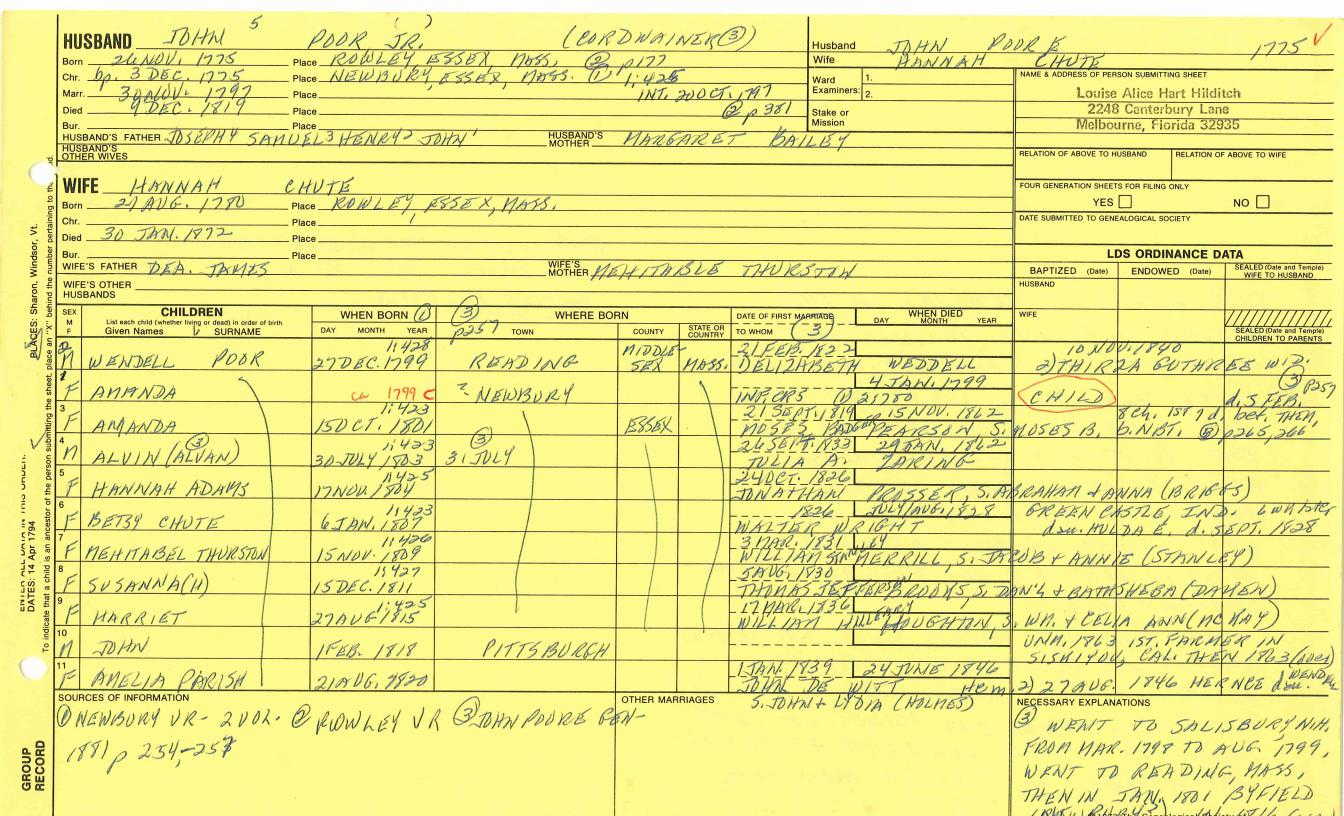 HUSBAND JOHN 5 POOR JR. (CORDWAINER ③)
Born 26 NOV. 1775 Place ROWLEY, ESSEX, MASS. ② p177
Chr. bp. 3 DEC. 1775 Place NEWBURY, ESSEX, MASS. ① 1:425
Marr. 30 NOV. 1797 Place INT. 20 OCT. 1797
Died 9 DEC. 1819 Place ② p 381
Bur. Place
HUSBAND'S FATHER JOSEPH4 SAMUEL3 HENRY2 JOHN1 HUSBAND'S MOTHER MARGARET BAILEY
HUSBAND'S OTHER WIVES
Husband JOHN POORE 1775 ✓
Wife HANNAH CHUTE
Ward Examiners: 1.
2.
Stake or Mission
NAME & ADDRESS OF PERSON SUBMITTING SHEET
Louise Alice Hart Hilditch
2248 Canterbury Lane
Melbourne, Florida 32935
RELATION OF ABOVE TO HUSBAND RELATION OF ABOVE TO WIFE
FOUR GENERATION SHEETS FOR FILING ONLY
YES NO
DATE SUBMITTED TO GENEALOGICAL SOCIETY
WIFE HANNAH CHUTE
Born 27 AUG. 1780 Place ROWLEY, ESSEX, MASS.
Chr. Place
Died 30 JAN. 1872 Place
Bur. Place
WIFE'S FATHER DEA. JAMES WIFE'S MOTHER MEHITABLE THURSTON
WIFE'S OTHER HUSBANDS
LDS ORDINANCE DATA
BAPTIZED (Date) ENDOWED (Date) SEALED (Date and Temple) WIFE TO HUSBAND
HUSBAND
WIFE
SEALED (Date and Temple) CHILDREN TO PARENTS
SEX M F
CHILDREN
List each child (whether living or dead) in order of birth
Given Names SURNAME
WHEN BORN ①
DAY MONTH YEAR
③ p257 WHERE BORN
TOWN COUNTY STATE OR COUNTRY
DATE OF FIRST MARRIAGE
TO WHOM (3)
WHEN DIED
DAY MONTH YEAR
M WENDELL POOR 1:428 27 DEC. 1799 READING MIDDLE-SEX MASS. 21 FEB. 1822 10 NOV. 1840
ELIZABETH WEDDELL 2) THIRZA GUTHREE WID.
F AMANDA 1799 c ? NEWBURY 4 JAN. 1799 CHILD ③ p257
INF. CRS d. 5 FEB.
3 F AMANDA 1:423 15 OCT. 1801 ESSEX 21 SEPT. 1819 15 NOV. 1862 8 ch. 1st 7 d. bet. THEN,
MOSES PEARSON S. MOSES B. p265,266
4 M ALVIN (ALVAN) ③ 1:423 30 JULY 1803 ③ 31 JULY 26 SEPT. 1833 29 JAN. 1862
JULIA A. ZARING
5 F HANNAH ADAMS 1:425 17 NOV. 1804 24 OCT. 1826
JONATHAN PROSSER, S. ABRAHAM & ANNA (BRIGGS)
6 F BETSY CHUTE 1:423 6 JAN. 1807 1826 JULY/AUG. 1828 GREEN CASTLE, IND.
WALTER WRIGHT dau. HULDA E. d. SEPT. 1828
7 F MEHITABEL THURSTON 1:426 15 NOV. 1809 3 MAR. 1831
WILLIAM MERRILL, S. JACOB & ANNIE (STANLEY)
8 F SUSANNA(H) 1:427 15 DEC. 1811 5 AUG. 1830
THOMAS JEFFERSON BROOKS, S. DAN'L & BATHSHEBA (DAKEN)
9 F HARRIET 1:425 27 AUG 1815 17 MAR. 1836
WILLIAM HILLEARY HOUGHTON, S. WM. & CELIA ANN (McKAY)
10 M JOHN 1 FEB. 1818 PITTSBURGH UNM. 1863 1ST. FARMER IN
SISKIYOU, CAL. THEN 1863
11 F AMELIA PARISH 21 AUG. 1820 1 JAN. 1839 24 JUNE 1846
JOHN DE WITT 2) 27 AUG. 1846
S. JOHN & LYDIA (HOLMES)
SOURCES OF INFORMATION
① NEWBURY VR- 2 VOL. ② ROWLEY VR ③ JOHN POORE GEN-
1881 p 254-257
OTHER MARRIAGES
NECESSARY EXPLANATIONS
③ WENT TO SALISBURY, N.H.
FROM MAR. 1798 TO AUG. 1799,
WENT TO READING, MASS,
THEN IN JAN. 1801 BYFIELD
ENTER ALL DATA IN THIS ORDER.
DATES: 14 Apr 1794
PLACES: Sharon, Windsor, Vt.
To indicate that a child is an ancestor of the person submitting the sheet, place an "X" behind the number pertaining to
GROUP RECORD